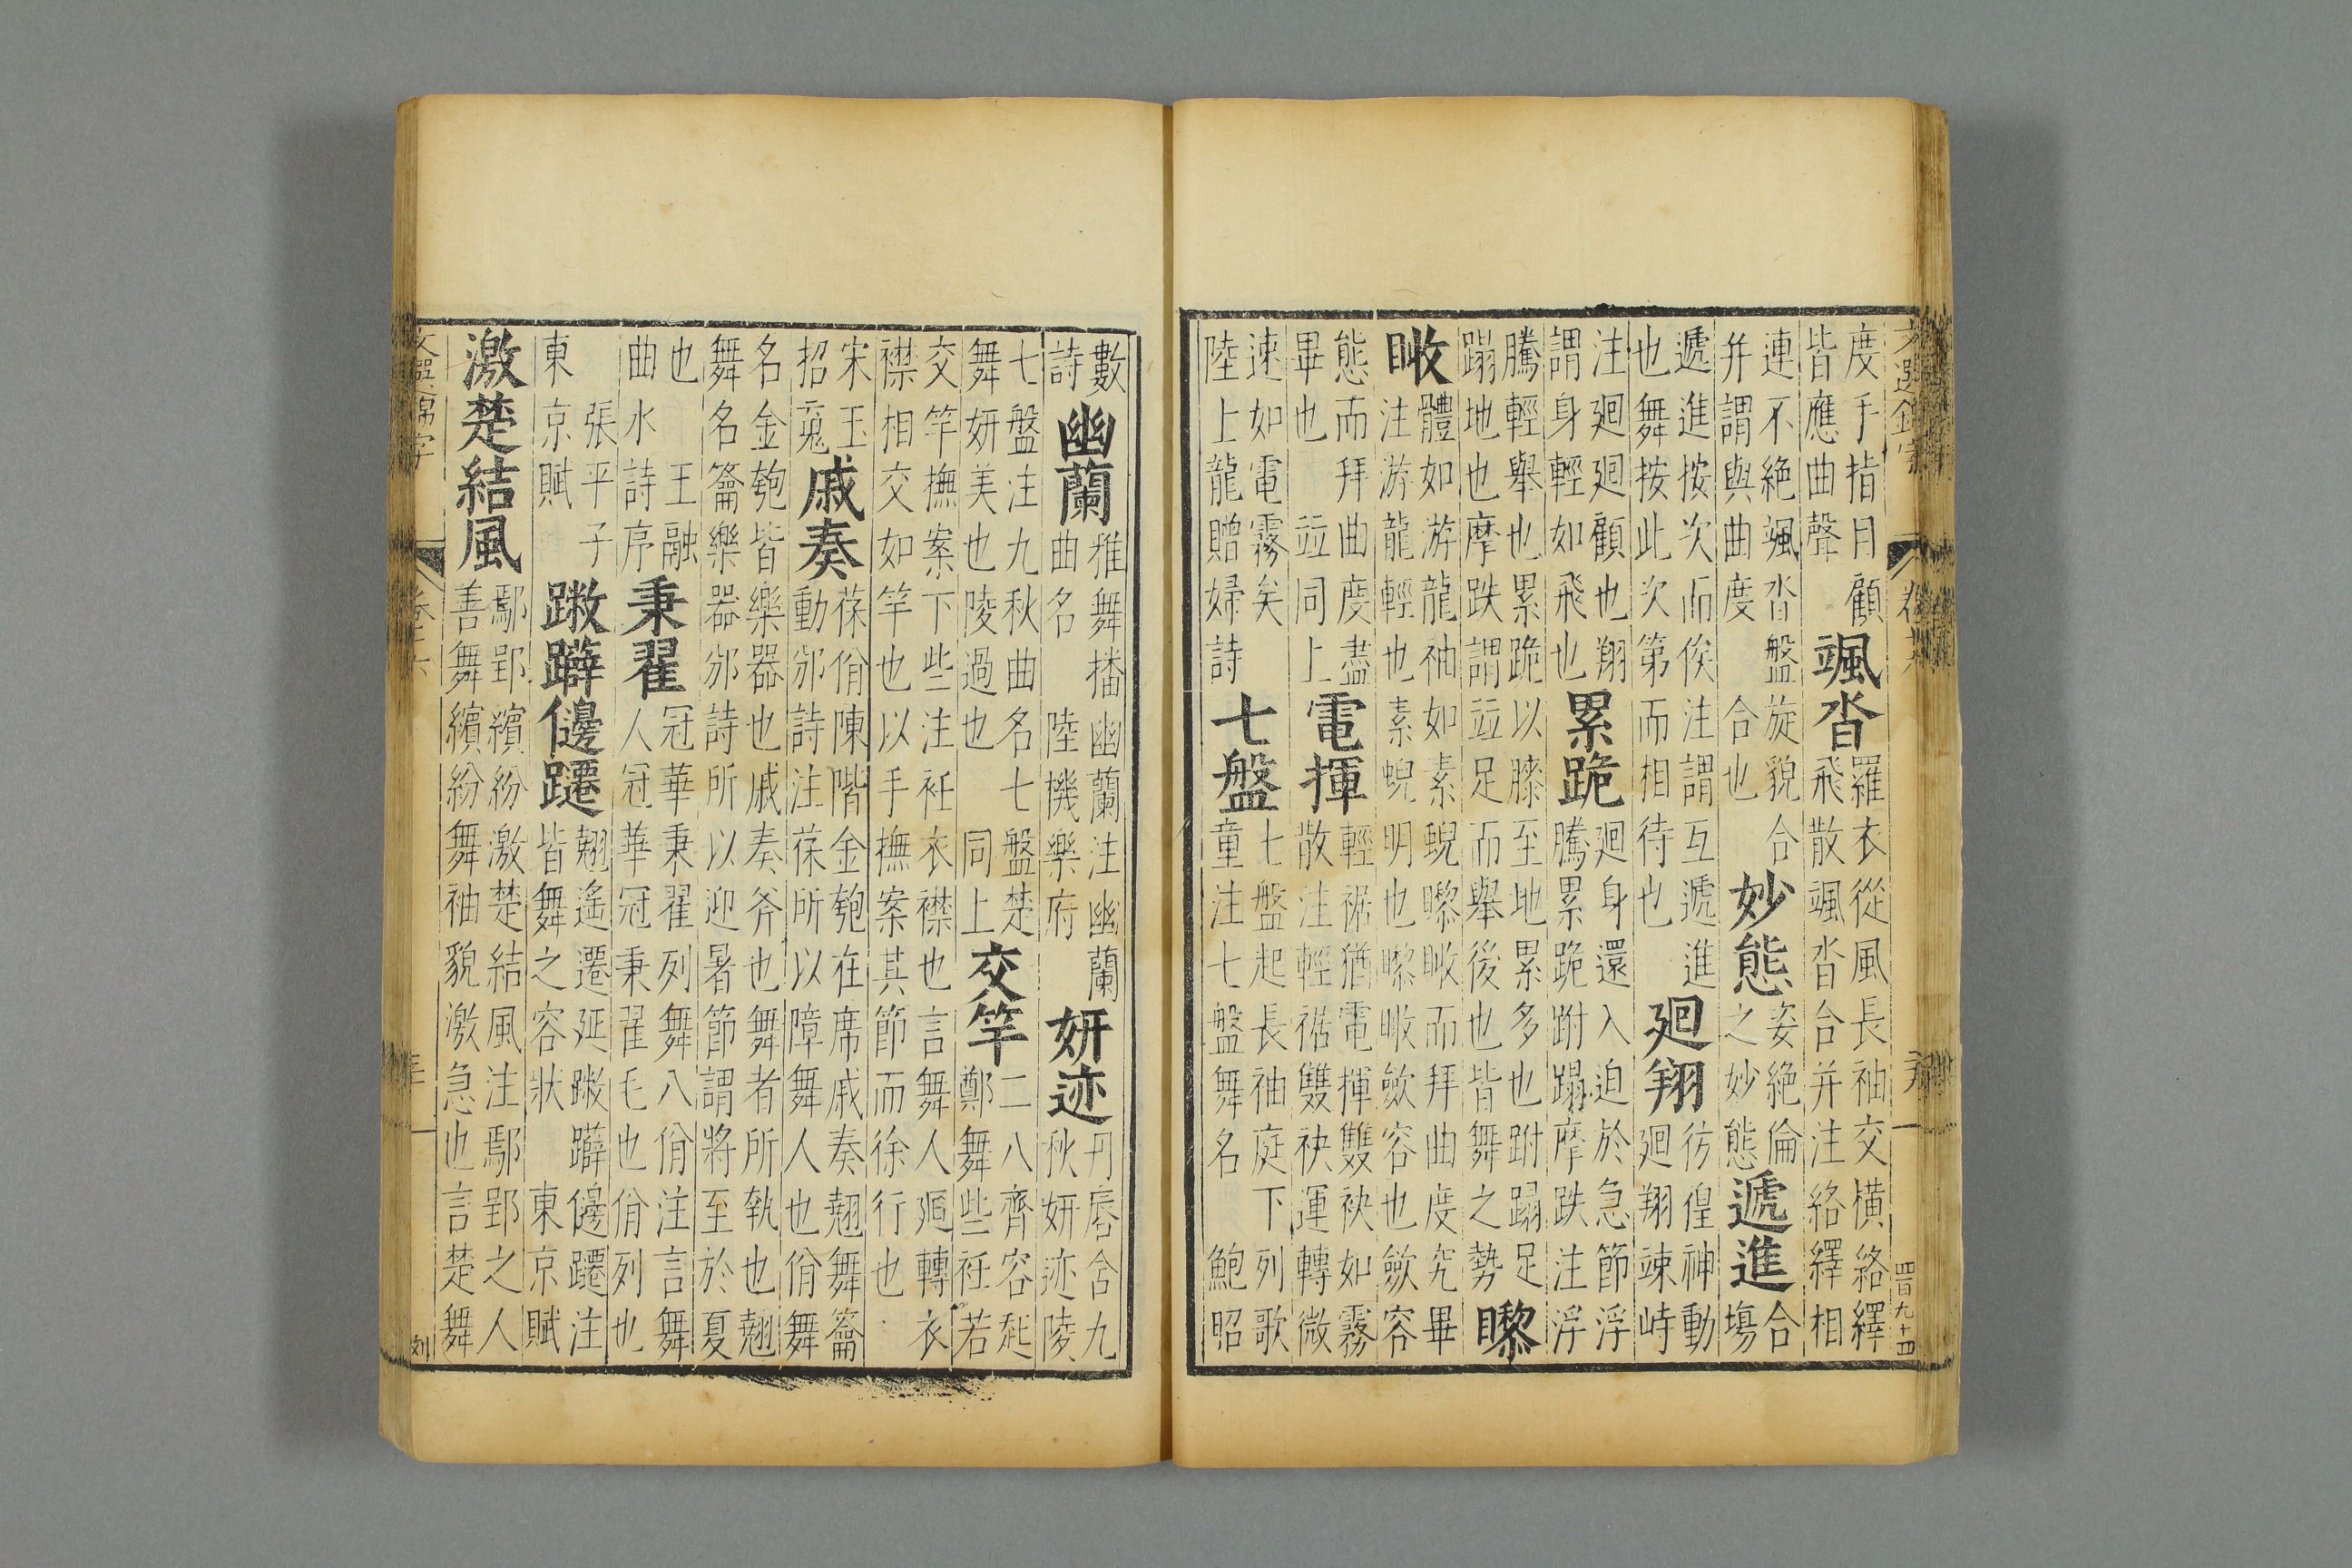 文選錦字
四百九十四
度手指目顧
皆應曲聲
颯沓
羅衣從風長袖交橫絡繹
飛散颯沓合并注絡繹相
連不絕颯沓盤旋貌 合
并謂與曲度 合也
妙態
姿絕倫
之妙態
遞進
合
塲
遞進按次而俟注謂互遞進
也舞按此次第而相待也
廻翔
彷徨神動
廻翔竦峙
注廻廻顧也翔
謂身輕如飛也
累跪
廻身還入迫於急節浮
騰累跪跗蹋摩跌注浮
騰輕舉也累跪以膝至地累多也跗蹋足
蹋地也摩跌謂竝足而舉後也皆舞之勢
𥌛
體如游龍袖如素蜺𥌛而拜曲度究畢
注游龍輕也素蜺明也𥌛斂容也斂容
態而拜曲度盡
畢也 竝同上
電揮
輕裾猶電揮雙袂如霧
散注輕裾雙袂運轉微
速如電霧矣
陸士龍贈婦詩
七盤
七盤起長袖庭下列歌
童注七盤舞名 鮑昭
數
詩
幽蘭
雅舞播幽蘭注幽蘭
曲名 陸機樂府
妍迹
丹唇含九
秋妍迹陵
七盤注九秋曲名七盤楚
舞妍美也陵過也 同上
交竿
二八齊容起
鄭舞些衽若
交竿撫案下些注衽衣襟也言舞人廻轉衣
襟相交如竿也以手撫案其節而徐行也
宋玉
招䰟
戚奏
葆佾陳階金匏在席戚奏翹舞籥
動邠詩注葆所以障舞人也佾舞
名金匏皆樂器也戚奏斧也舞者所執也翹
舞名籥樂器邠詩所以迎暑節謂將至於夏
也 王融
曲水詩序
秉翟
冠華秉翟列舞八佾注言舞
人冠華冠秉翟毛也佾列也
張平子
東京賦
蹩躃躚
翹遙遷延蹩躃躚注
皆舞之容狀 東京賦
激楚結風
鄢郢繽紛激楚結風注鄢郢之人
善舞繽紛舞袖貌激急也言楚舞
文選錦字
刘